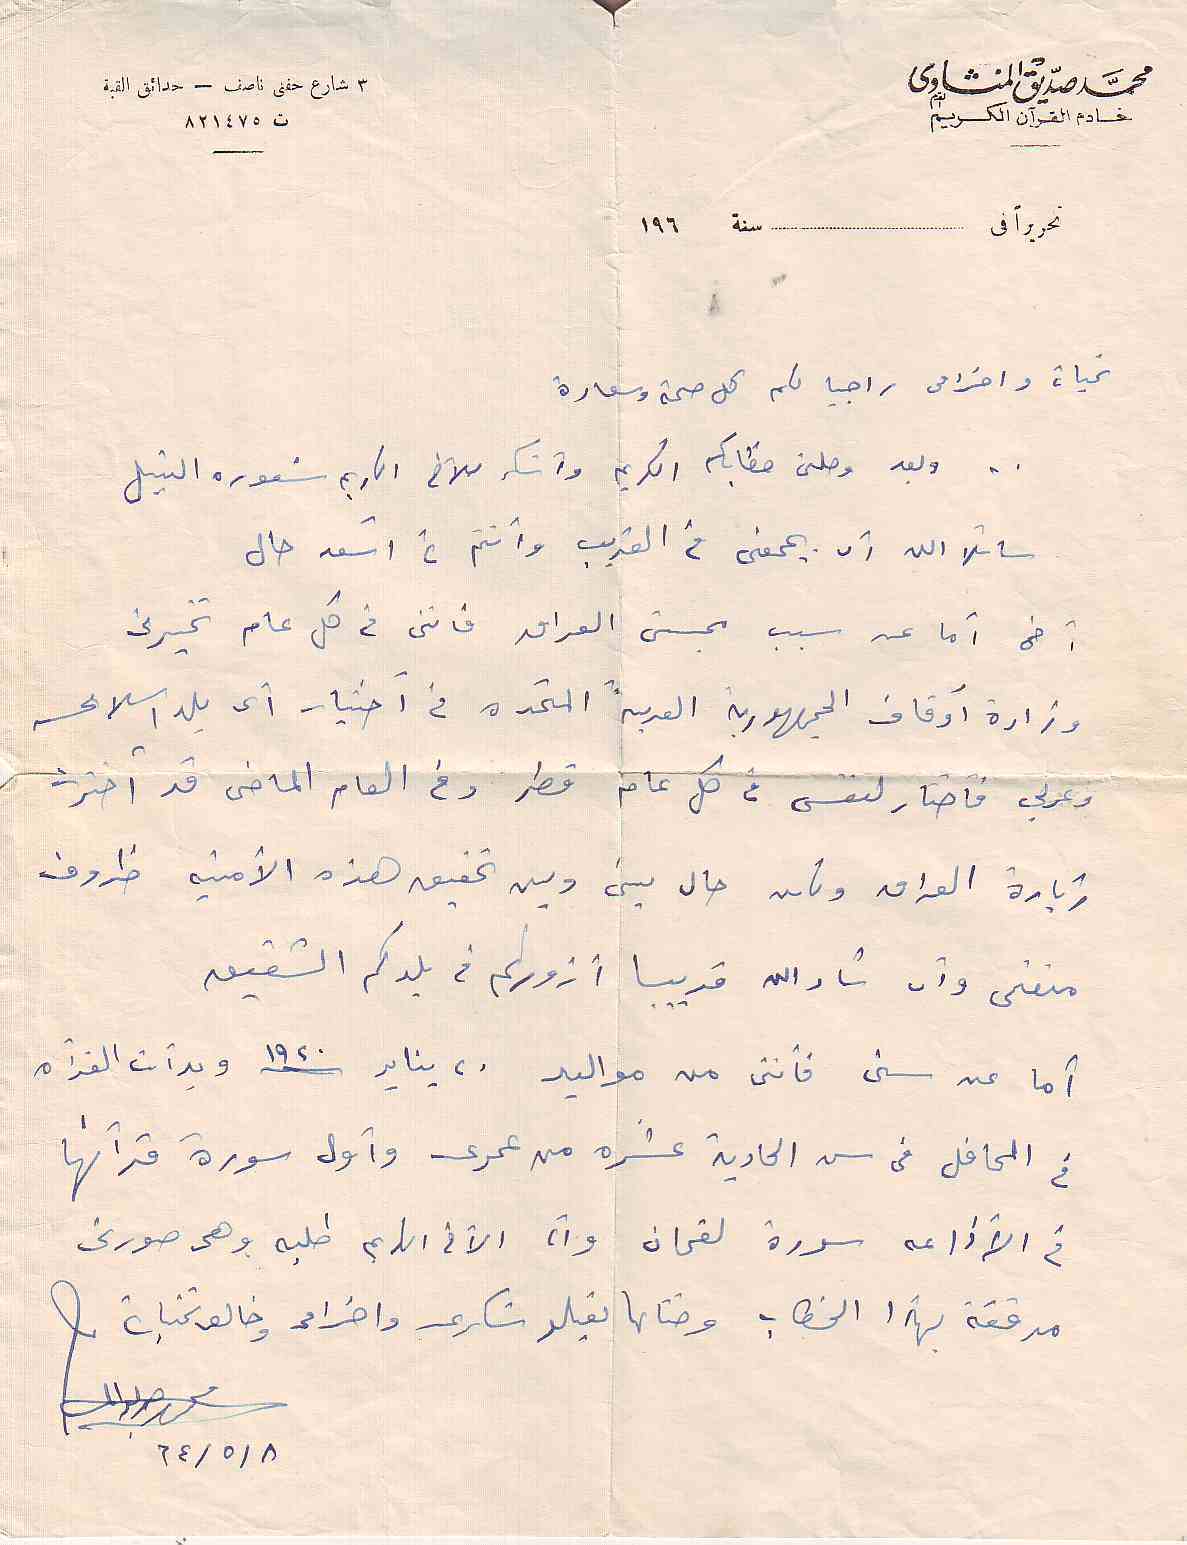 محمد صديق المنشاوى
خادم القرآن الكريم
٣ شارع حفنى ناصف — حدائق القبة
ت ٨٢١٤٧٥
تحريراً فى .......... سنة ١٩٦
تحياتى واحترامى راجيا لكم كل صحة وسعادة
.. وبعد وصلنى خطابكم الكريم وأشكر للأخ الكريم شعوره النبيل
سائلا الله أن يجمعنى فى القريب وأنتم فى أسعد حال
أخى أما عن سبب مجيئى العراق فإننى فى كل عام تخيرنى
وزارة أوقاف الجمهورية العربية المتحده فى أختيار أى بلد اسلامى
وعربى فأختار لنفسى فى كل عام قطر وفى العام الماضى قد أخترت
زيارة العراق ولكن حال بينى وبين تحقيق هذه الأمنيه ظروف
منعتنى وأن شاء الله قريبا أزوركم فى بلدكم الشقيق
أما عن سنى فأننى من مواليد ٢٠ يناير ١٩٢٠ وبدأت القرآه
فى المحافل فى سن الحادية عشره من عمرى وأول سورة قرأتها
فى الأذاعه سورة لقمان وأما الأخ الكريم طلبه وهى صورتى
مرفقة بهذا الخطاب وختاما تقبلو شكرى واحترامى وخالص تحياتى
محمد صديق المنشاوى
٦٤/٥/٨